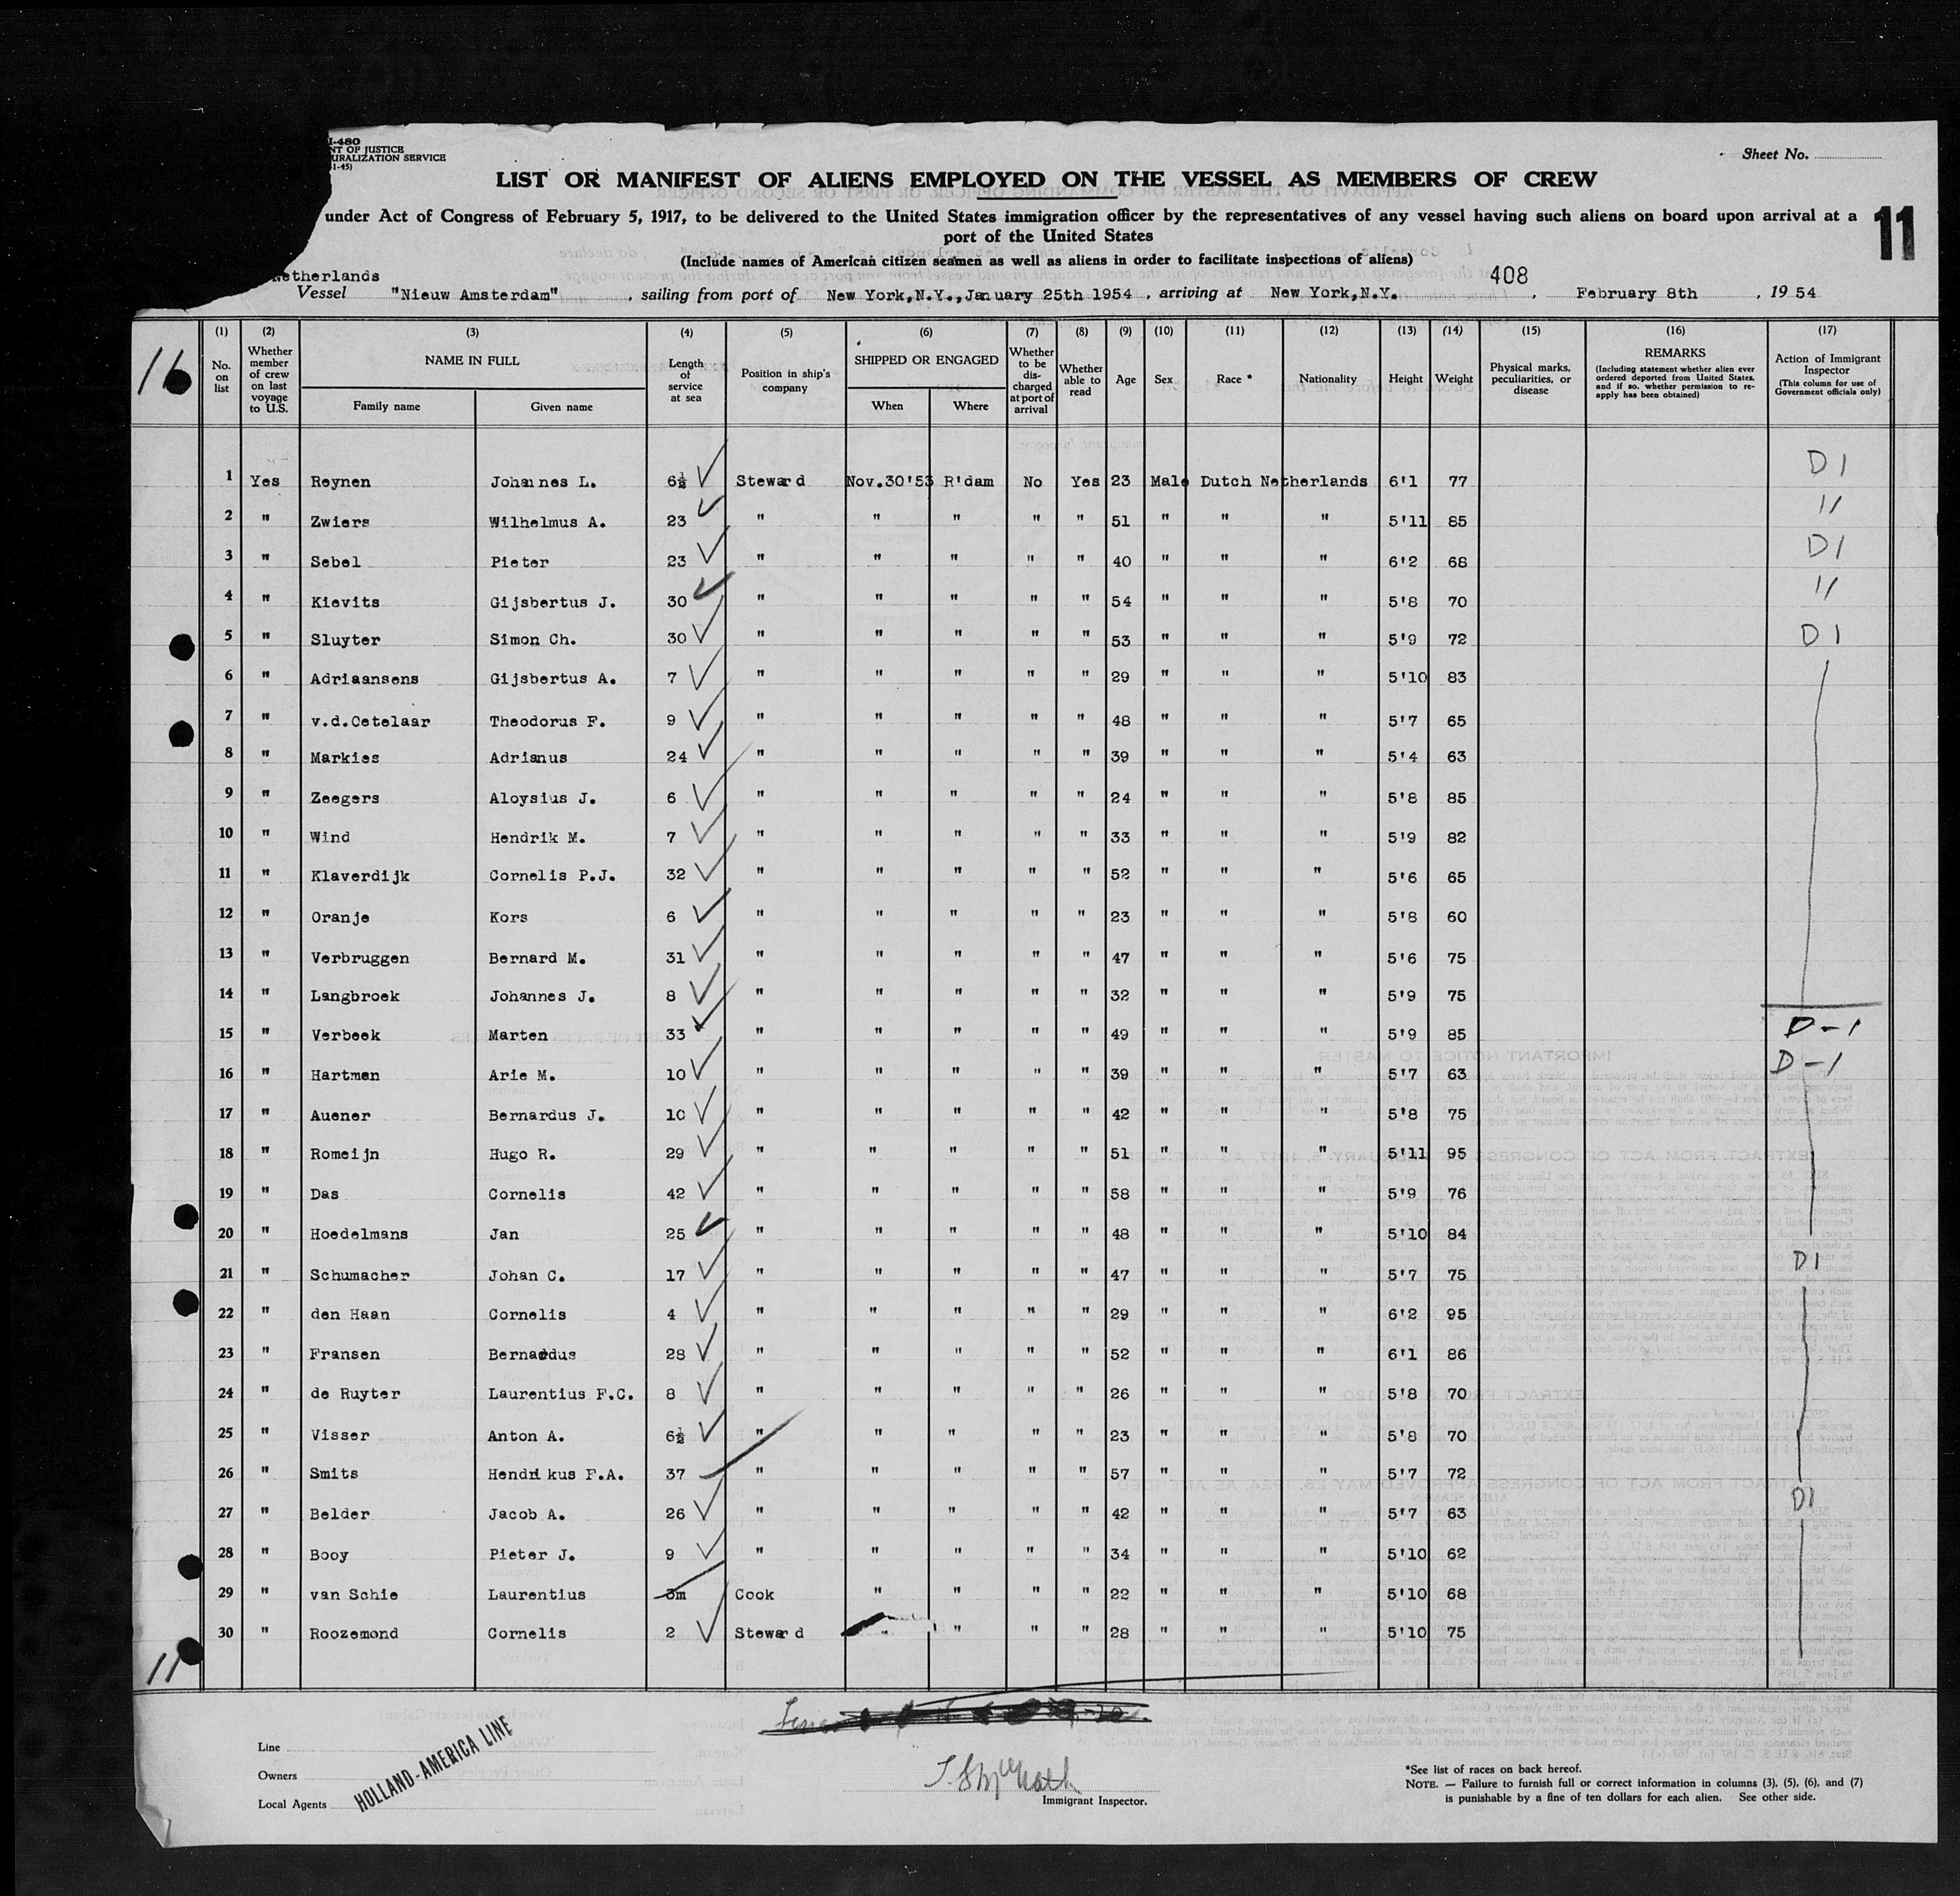 I-480
NT OF JUSTICE
URALIZATION SERVICE
1-45)
Sheet No.
LIST OR MANIFEST OF ALIENS EMPLOYED ON THE VESSEL AS MEMBERS OF CREW
under Act of Congress of February 5, 1917, to be delivered to the United States immigration officer by the representatives of any vessel having such aliens on board upon arrival at a
port of the United States
11
(Include names of American citizen seamen as well as aliens in order to facilitate inspections of aliens)
408
Netherlands
Vessel "Nieuw Amsterdam", sailing from port of New York,N.Y.,January 25th 1954, arriving at New York,N.Y., February 8th, 1954
(1) (2) (3) (4) (5) (6) (7) (8) (9) (10) (11) (12) (13) (14) (15) (16) (17)
No. on list Whether member of crew on last voyage to U.S. NAME IN FULL Family name Given name Length of service at sea Position in ship's company SHIPPED OR ENGAGED When Where Whether to be discharged at port of arrival Whether able to read Age Sex Race * Nationality Height Weight Physical marks, peculiarities, or disease REMARKS (Including statement whether alien ever ordered deported from United States, and if so, whether permission to reapply has been obtained) Action of Immigrant Inspector (This column for use of Government officials only)
11
1 Yes Reynen Johannes L. 6½ Steward Nov.30'53 R'dam No Yes 23 Male Dutch Netherlands 6'1 77 D1
2 " Zwiers Wilhelmus A. 23 " " " " " 51 " " " 5'11 85 "
3 " Sebel Pieter 23 " " " " " 40 " " " 6'2 68 D1
4 " Kievits Gijsbertus J. 30 " " " " " 54 " " " 5'8 70 "
5 " Sluyter Simon Ch. 30 " " " " " 53 " " " 5'9 72 D1
6 " Adriaansens Gijsbertus A. 7 " " " " " 29 " " " 5'10 83
7 " v.d.Cetelaar Theodorus F. 9 " " " " " 48 " " " 5'7 65
8 " Markies Adrianus 24 " " " " " 39 " " " 5'4 63
9 " Zeegers Aloysius J. 6 " " " " " 24 " " " 5'8 85
10 " Wind Hendrik M. 7 " " " " " 33 " " " 5'9 82
11 " Klaverdijk Cornelis P.J. 32 " " " " " 52 " " " 5'6 65
12 " Oranje Kors 6 " " " " " 23 " " " 5'8 60
13 " Verbruggen Bernard M. 31 " " " " " 47 " " " 5'6 75
14 " Langbroek Johannes J. 8 " " " " " 32 " " " 5'9 75
15 " Verbeek Marten 33 " " " " " 49 " " " 5'9 85 D-1
16 " Hartmen Arie M. 10 " " " " " 39 " " " 5'7 63 D-1
17 " Auener Bernardus J. 10 " " " " " 42 " " " 5'8 75
18 " Romeijn Hugo R. 29 " " " " " 51 " " " 5'11 95
19 " Das Cornelis 42 " " " " " 58 " " " 5'9 76
20 " Hoedelmans Jan 25 " " " " " 48 " " " 5'10 84
21 " Schumacher Johan C. 17 " " " " " 47 " " " 5'7 75 D1
22 " den Haan Cornelis 4 " " " " " 29 " " " 6'2 95
23 " Fransen Bernaedus 28 " " " " " 52 " " " 6'1 86
24 " de Ruyter Laurentius F.C. 8 " " " " " 26 " " " 5'8 70
25 " Visser Anton A. 6½ " " " " " 23 " " " 5'8 70
26 " Smits Hendrikus F.A. 37 " " " " " 57 " " " 5'7 72
27 " Belder Jacob A. 26 " " " " " 42 " " " 5'7 63 D1
28 " Booy Pieter J. 9 " " " " " 34 " " " 5'10 62
29 " van Schie Laurentius 3m Cook " " " " 22 " " " 5'10 68
30 " Roozemond Cornelis 2 Steward " " " " 28 " " " 5'10 75
11
Line
Owners
Local Agents
HOLLAND-AMERICA LINE
Immigrant Inspector.
*See list of races on back hereof.
NOTE. — Failure to furnish full or correct information in columns (3), (5), (6), and (7)
is punishable by a fine of ten dollars for each alien. See other side.